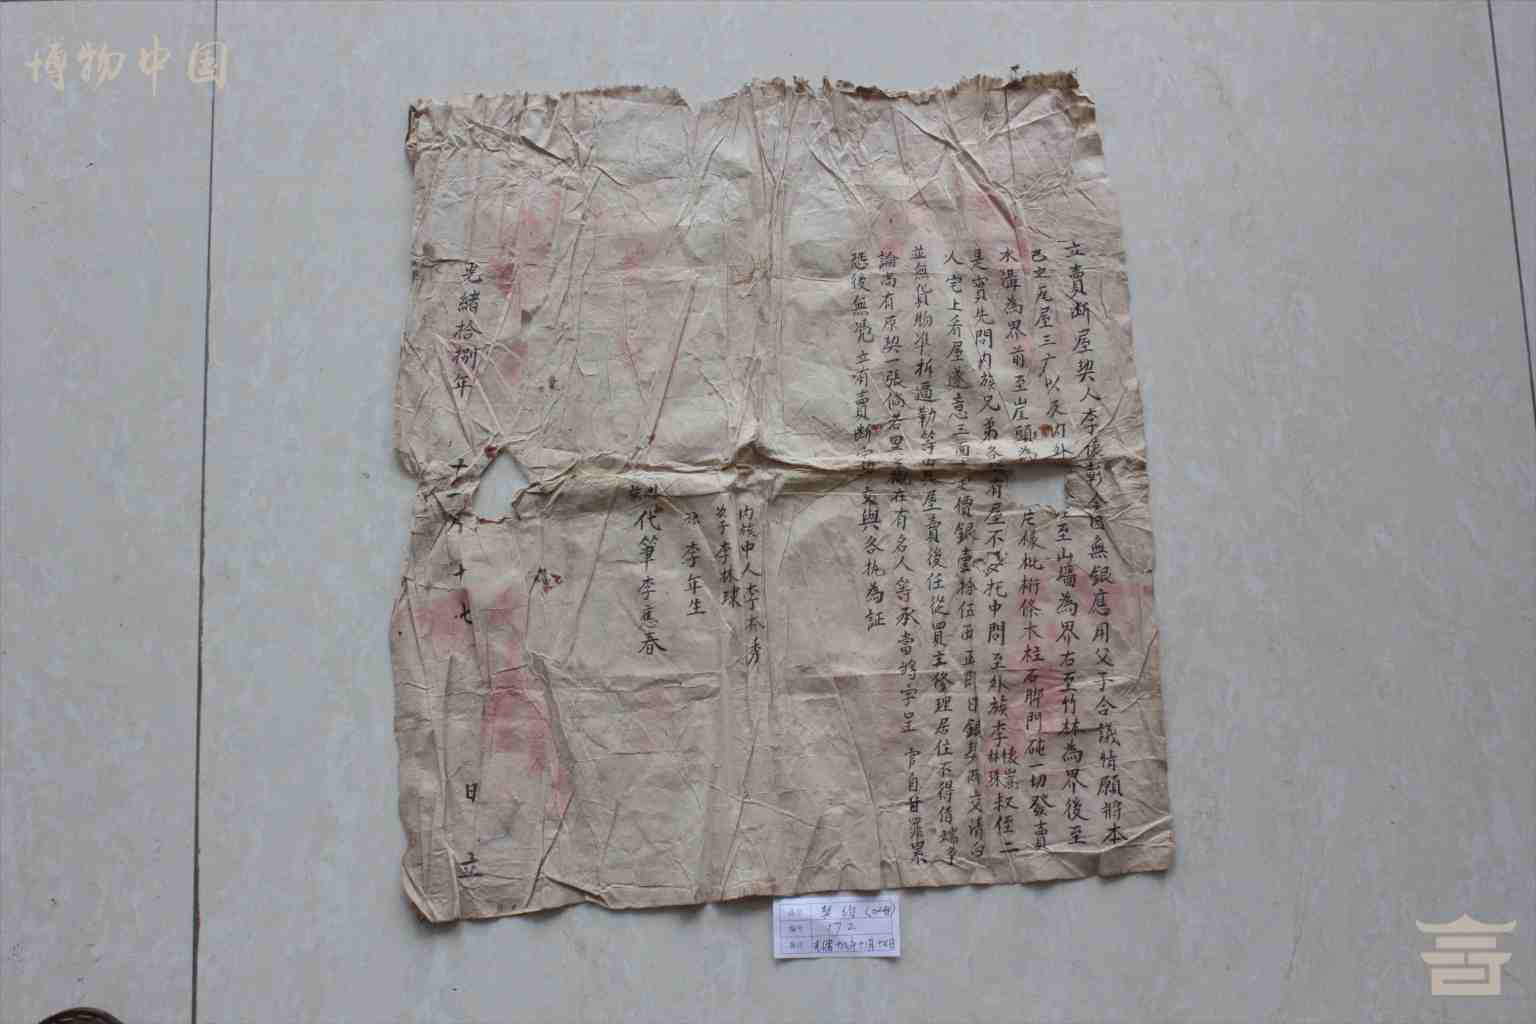 博物中国
立賣断屋契人李懷彰今因無銀應用父子合議情愿將本
己之瓦屋三广以及內外 至山墻為界右至竹林為界後至
水溝為界前至崖頭為 片椽枇桁條木柱石脚門砘一切發賣
是實先問內族兄弟各 肯屋不 又托中問至外族李懷嵩林珠叔侄二
人宅上看屋遂意三面 定價銀壹拾伍両正即日銀契両交清白
並無貨物准折逼勒等 其屋賣後任從買主修理居住不得借端爭
論尚有原契一張倘若里 在有名人等承當將字呈官自甘罪累
恐後無憑立有賣断 契 與各执為証
內族中人李本秀
次子李林球
李年生
代筆李應春
光緒拾捌年 十一月十七日立
契約
172
光緒十八年十一月十七日